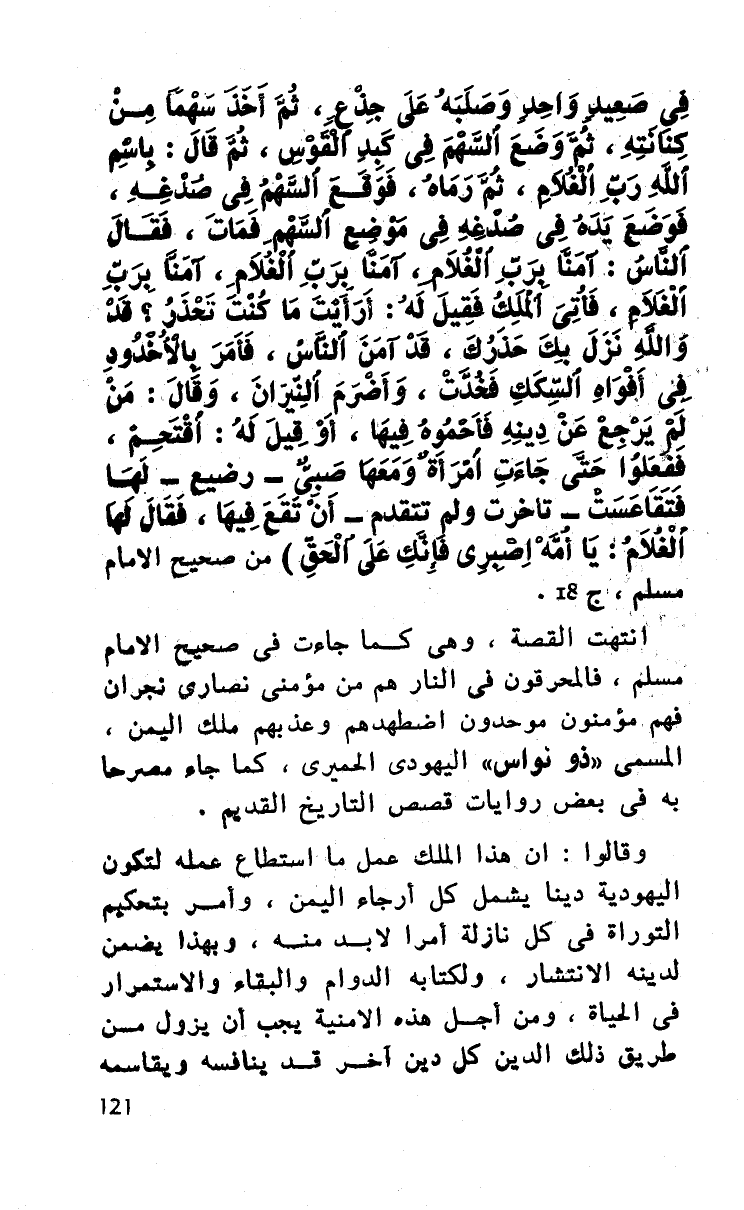 فِي صَعِيدٍ وَاحِدٍ وَصَلَبَهُ عَلَى جِذْعٍ ، ثُمَّ أَخَذَ سَهْمًا مِـنْ
كِنَانَتِهِ ، ثُمَّ وَضَعَ ٱلسَّهْمَ فِى كَبِدِ ٱلْقَوْسِ ، ثُمَّ قَالَ : بِاسْمِ
ٱللَّهِ رَبِّ ٱلْغُلَامِ ، ثُمَّ رَمَاهُ ، فَوَقَـعَ ٱلسَّهْمُ فِى صُدْغِـهِ ،
فَوَضَعَ يَدَهُ فِى صُدْغِهِ فِى مَوْضِعِ ٱلسَّهْمِ فَمَاتَ ، فَقَـالَ
ٱلنَّاسُ : آمَنَّا بِرَبِّ ٱلْغُلَامِ ، آمَنَّا بِرَبِّ ٱلْغُلَامِ ، آمَنَّا بِرَبِّ
ٱلْغُلَامِ ، فَأُتِىَ ٱلْمَلِكُ فَقِيلَ لَهُ : أَرَأَيْتَ مَا كُنْتَ تَحْذَرُ ؟ قَدْ
وَاللَّهِ نَزَلَ بِكَ حَذَرُكَ ، قَدْ آمَنَ ٱلنَّاسُ ، فَأَمَرَ بِالْأُخْدُودِ
فِى أَفْوَاهِ ٱلسِّكَكِ فَخُدَّتْ ، وَأَضْرَمَ ٱلنِّيرَانَ ، وَقَالَ : مَنْ
لَمْ يَرْجِعْ عَنْ دِينِهِ فَأَحْمُوهُ فِيهَا ، أَوْ قِيلَ لَهُ : ٱقْتَحِـمْ ،
فَفَعَلُوا حَتَّى جَاءَتِ ٱمْرَأَةٌ وَمَعَهَا صَبِىٌّ ــ رضيع ــ لَهَـا
فَتَقَاعَسَتْ ــ تاخرت ولم تتقدم ــ أَنْ تَقَعَ فِيهَا ، فَقَالَ لَهَا
ٱلْغُلَامُ : يَا أُمَّهْ اِصْبِرِى فَإِنَّكِ عَلَى ٱلْحَقِّ ) من صحيح الامام
مسلم ، ج 18 .
انتهت القصة ، وهى كــما جاءت فى صحيح الامام
مسلم ، فالمحرقون فى النار هم من مؤمنى نصارى نجران
فهم مؤمنون موحدون اضطهدهم وعذبهم ملك اليمن ،
المسمى «ذو نواس» اليهودى الحميرى ، كما جاء مصرحا
به فى بعض روايات قصص التاريخ القديم .
وقالوا : ان هذا الملك عمل ما استطاع عمله لتكون
اليهودية دينا يشمل كل أرجاء اليمن ، وأمــر بتحكيم
التوراة فى كل نازلة أمرا لابــد منــه ، وبهذا يضمن
لدينه الانتشار ، ولكتابه الدوام والبقاء والاستمرار
فى الحياة ، ومن أجــل هذه الامنية يجب أن يزول مــن
طريق ذلك الدين كل دين آخــر قــد ينافسه ويقاسمه
121